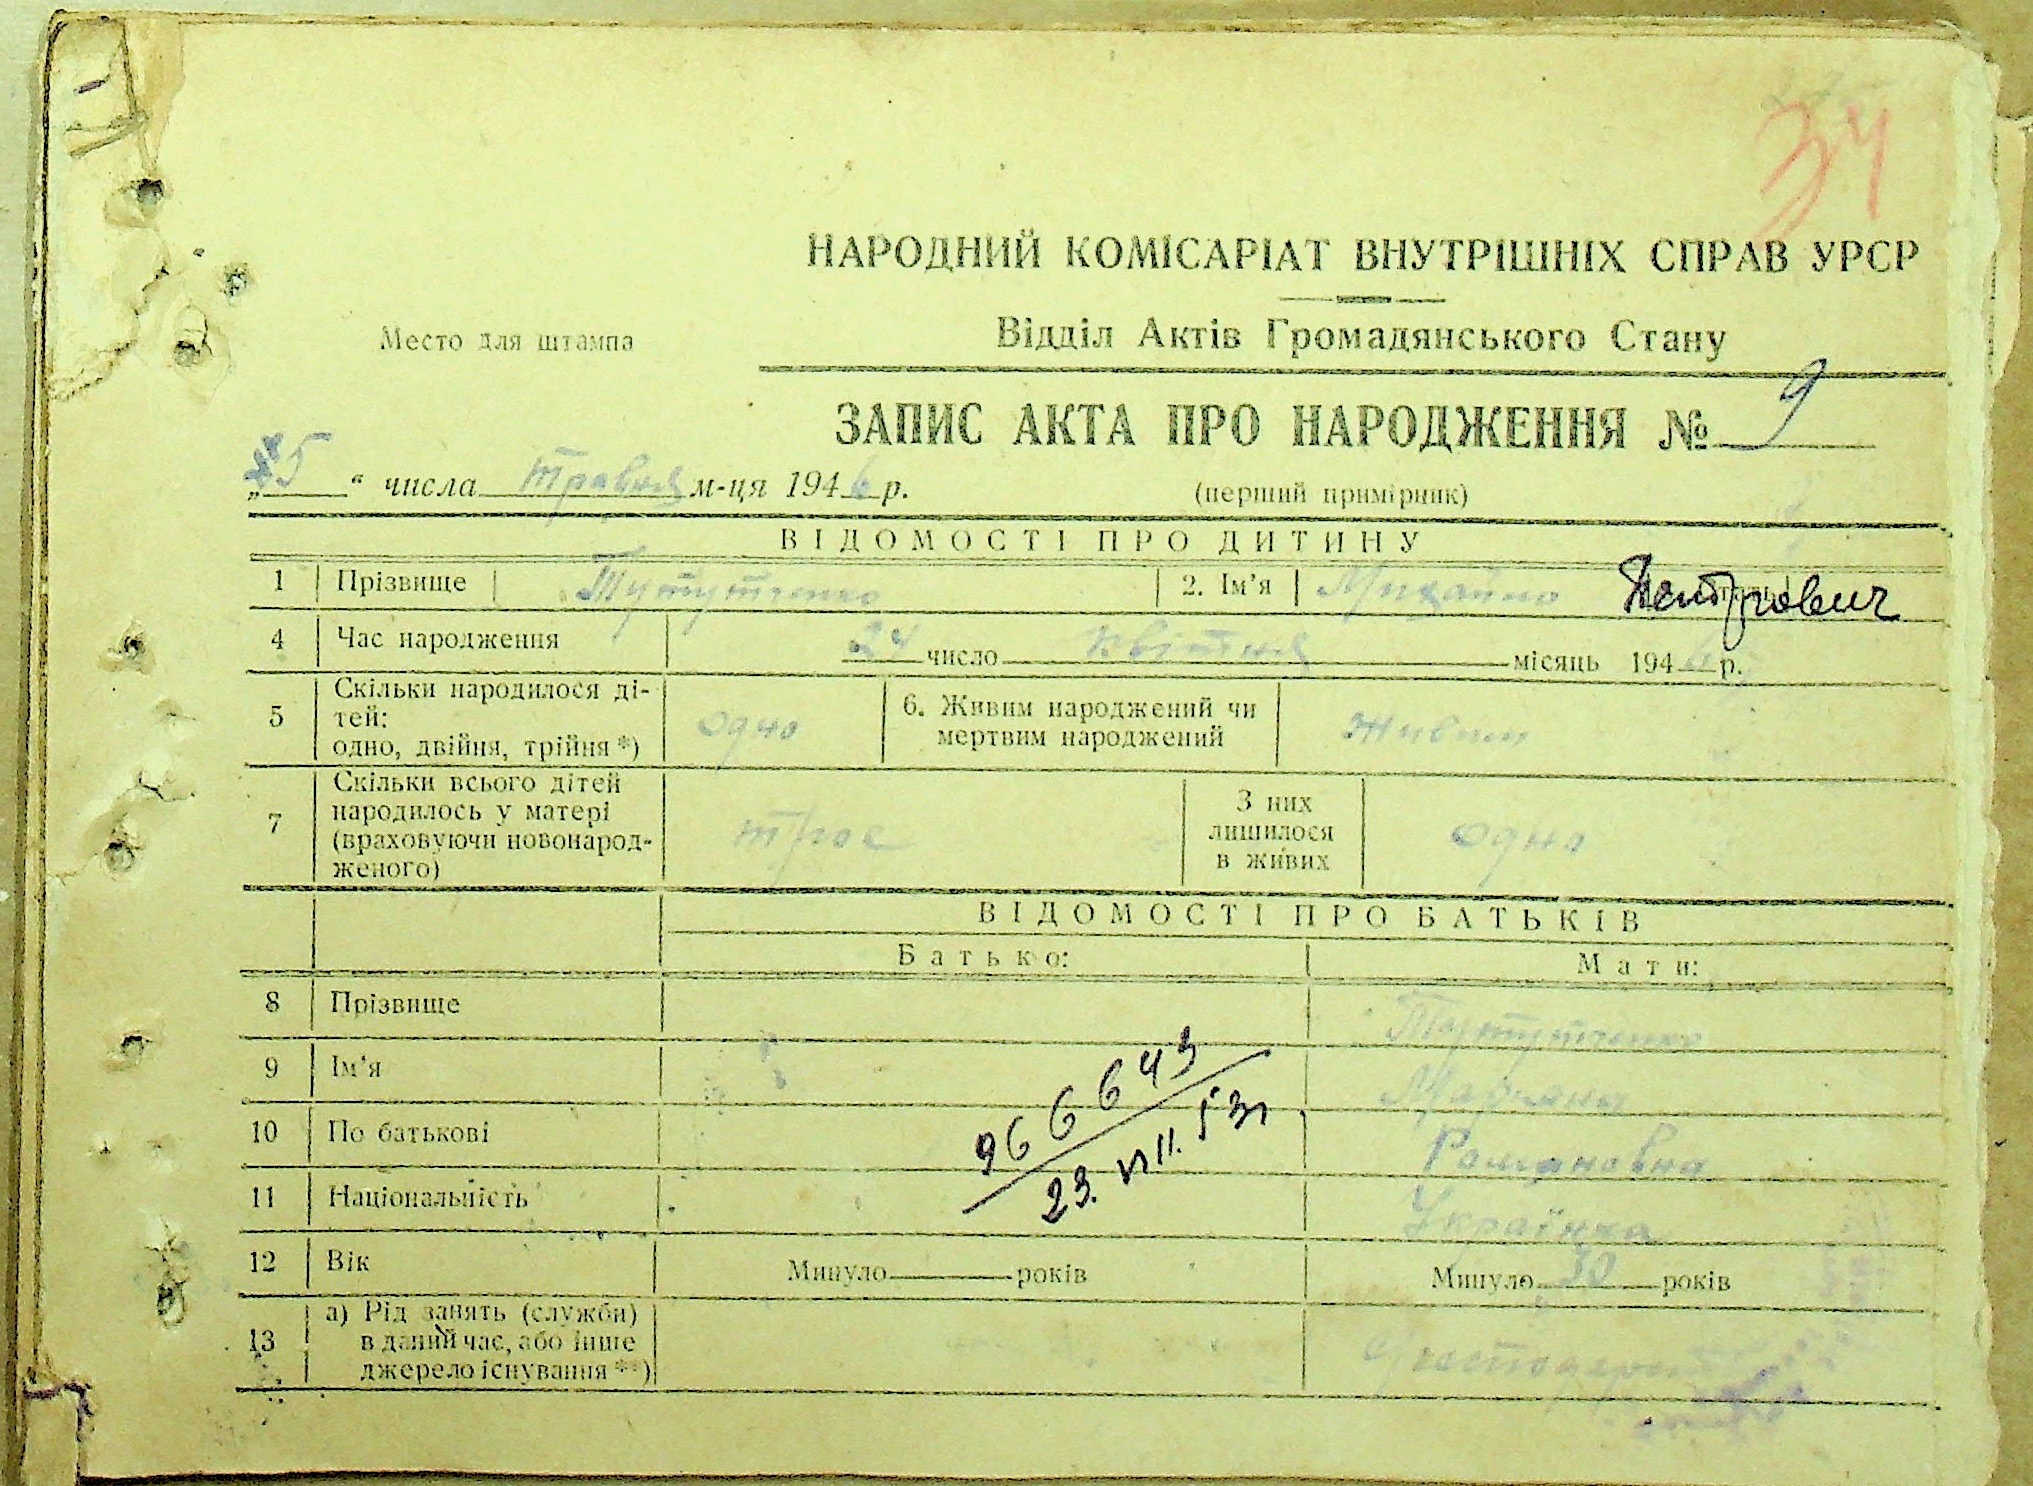 34
НАРОДНИЙ КОМІСАРІАТ ВНУТРІШНІХ СПРАВ УРСР
Место для штампа
Відділ Актів Громадянського Стану
ЗАПИС АКТА ПРО НАРОДЖЕННЯ № 9
„5“ числа травня м-ця 1946 р.
(перший примірник)
ВІДОМОСТІ ПРО ДИТИНУ
1 Прізвище Тутутченко 2. Ім'я Михайло Петрович
4 Час народження 24 число квітня місяць 194 р.
5 Скільки народилося ді-
тей:
одно, двійня, трійня *) одно
6. Живим народжений чи
мертвим народжений живим
7 Скільки всього дітей
народилось у матері
(враховуючи новонарод-
женого) троє
З них
лишилося
в живих одно
ВІДОМОСТІ ПРО БАТЬКІВ
Батько: Мати:
8 Прізвище Тутутченко
9 Ім'я Мар'яна
10 По батькові Романовна
11 Національність Українка
12 Вік Минуло років Минуло 30 років
13 а) Рід занять (служби)
в даний час, або інше
джерело існування **)
966643
23. VIII. 53